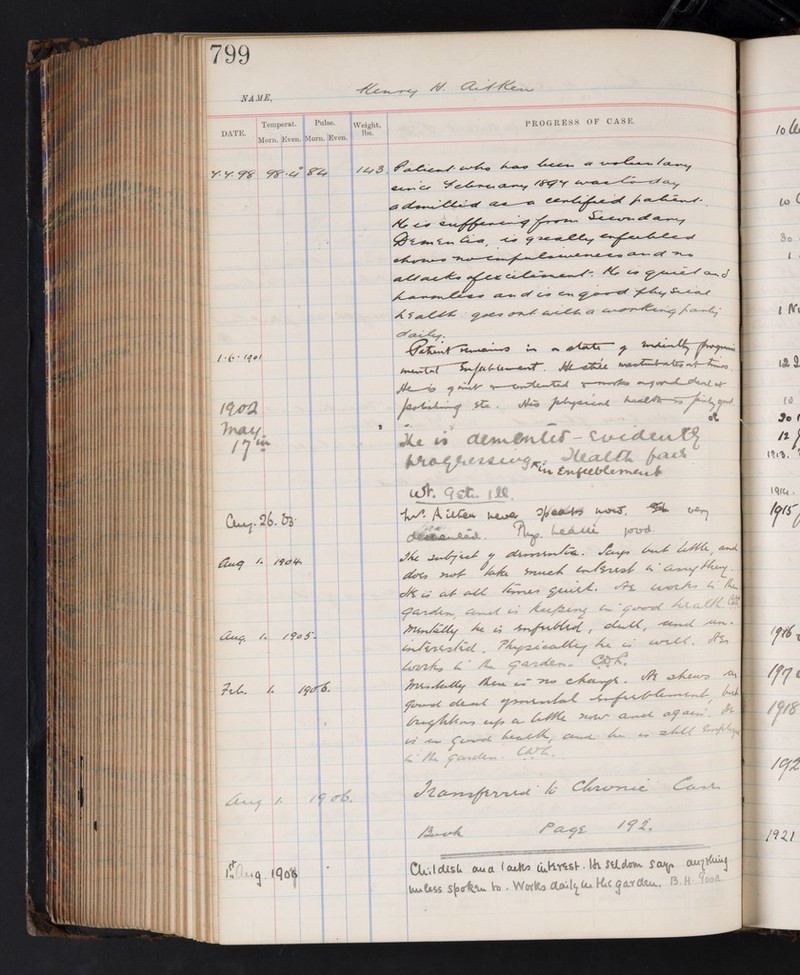 799
NAME, Henry H. Aitken
DATE. Temperat. Pulse. Weight, lbs. PROGRESS OF CASE.
Morn. Even. Morn. Even.
4.4.98 98.4° 84 143. Patient who has been a voluntary
since February 1897 was to-day
admitted as a certified patient.
He is suffering from Secondary
Dementia, is greatly enfeebled
shows no impulsiveness and no
attacks of excitement. He is quiet and
harmless and is in good physical
health goes out with a working party
daily.
1.6.1901 Patient remains in a state of mentally
mental Enfeeblement. He still masturbates at times
He is quiet & contented & works a good deal at
polishing etc. His physical health is fairly good
1902
May
17th
He is demented - evidently
progressing in Enfeeblement
Health fair
wt. 9st.
Aug. 26. 03. Mr. Aitken never speaks now, very
demented. Phys. health good.
Aug 1. 1904. The subject of dementia. Says but little, and
does not take much interest in anything.
He is at all times quiet. He works in the
garden, and is keeping in good health.
Aug. 1. 1905. Mentally he is enfeebled, dull, and un-
interested. Physically he is well. He
works in the garden.
Feb. 1. 1906. Mentally there is no change. He shews a
good deal of mental enfeeblement, but
brightens up a little now and again. He
is in good health, and he is still
in the garden.
Aug 1. 1906. Transferred to Chronic Case
Book Page 192.
1st Aug. 1908 Childish and lacks interest. He seldom says anything
unless spoken to. Works daily in the garden. B. H.
1915
1918
1921